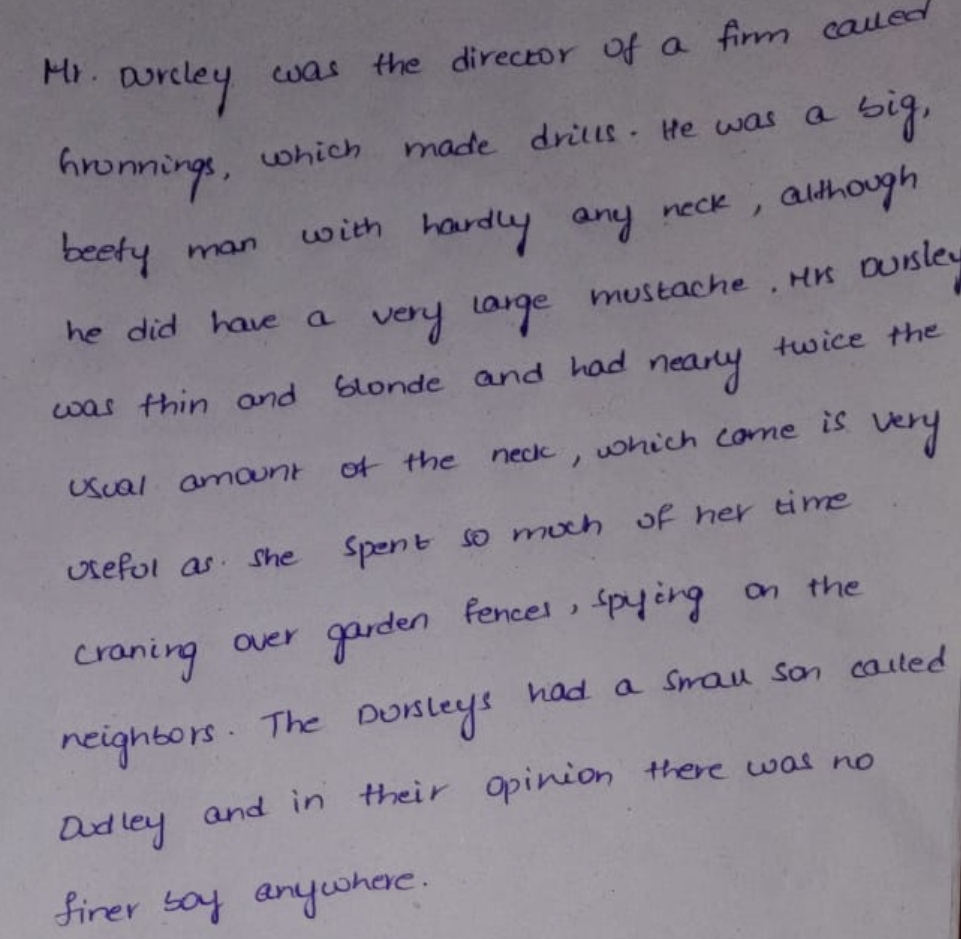 Mr. Durcley was the director of a firm called
hrunnings, which made drills. He was a big,
beefy man with hardly any neck, although
he did have a very large mustache. Mrs Dursley
was thin and blonde and had nearly twice the
usual amount of the neck, which came is very
useful as. she spent so much of her time
craning over garden fences, spying on the
neighbors. The Dursleys had a small son called
Dudley and in their opinion there was no
finer boy anywhere.